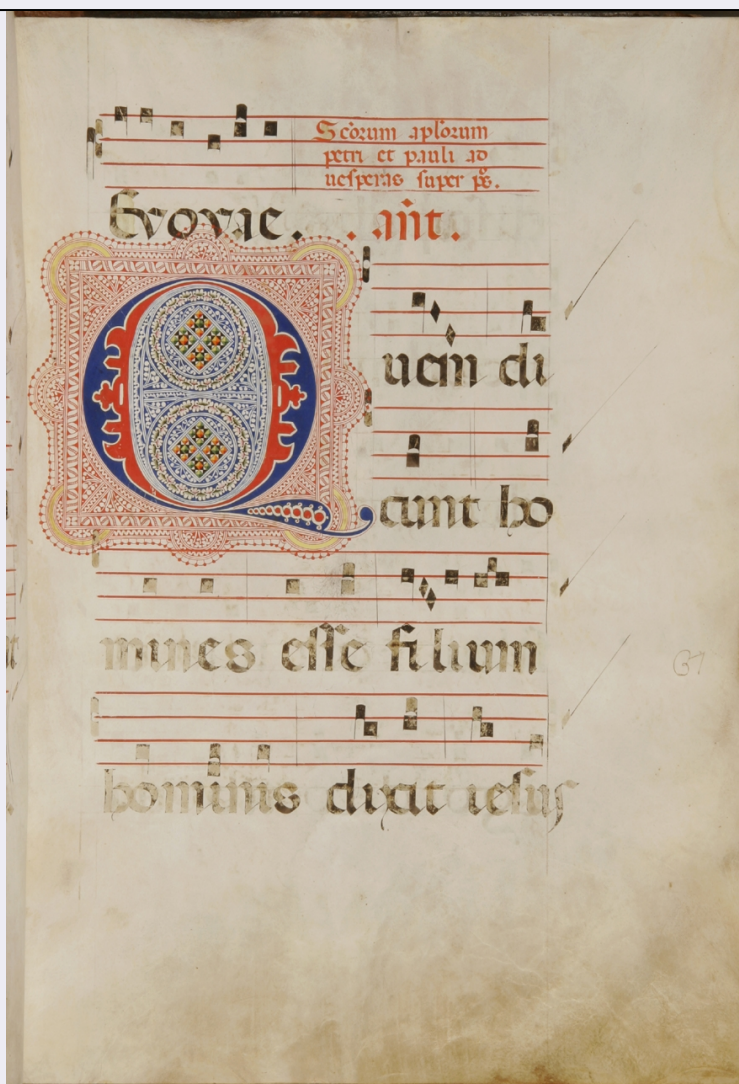 Scorum aplorum
petri et pauli ad
uesperas super ps.
Evovae. . ant.
Quem di
cunt ho
mines esse filium
hominis dixit iesus
67